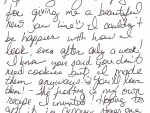 for giving me a beautiful
new jaw line! I couldn't
be happier with how I
look, even after only a week!
I know you said you don't
need cookies but I made
them anyways
The frosting is my own
recipe I invented! Hoping to